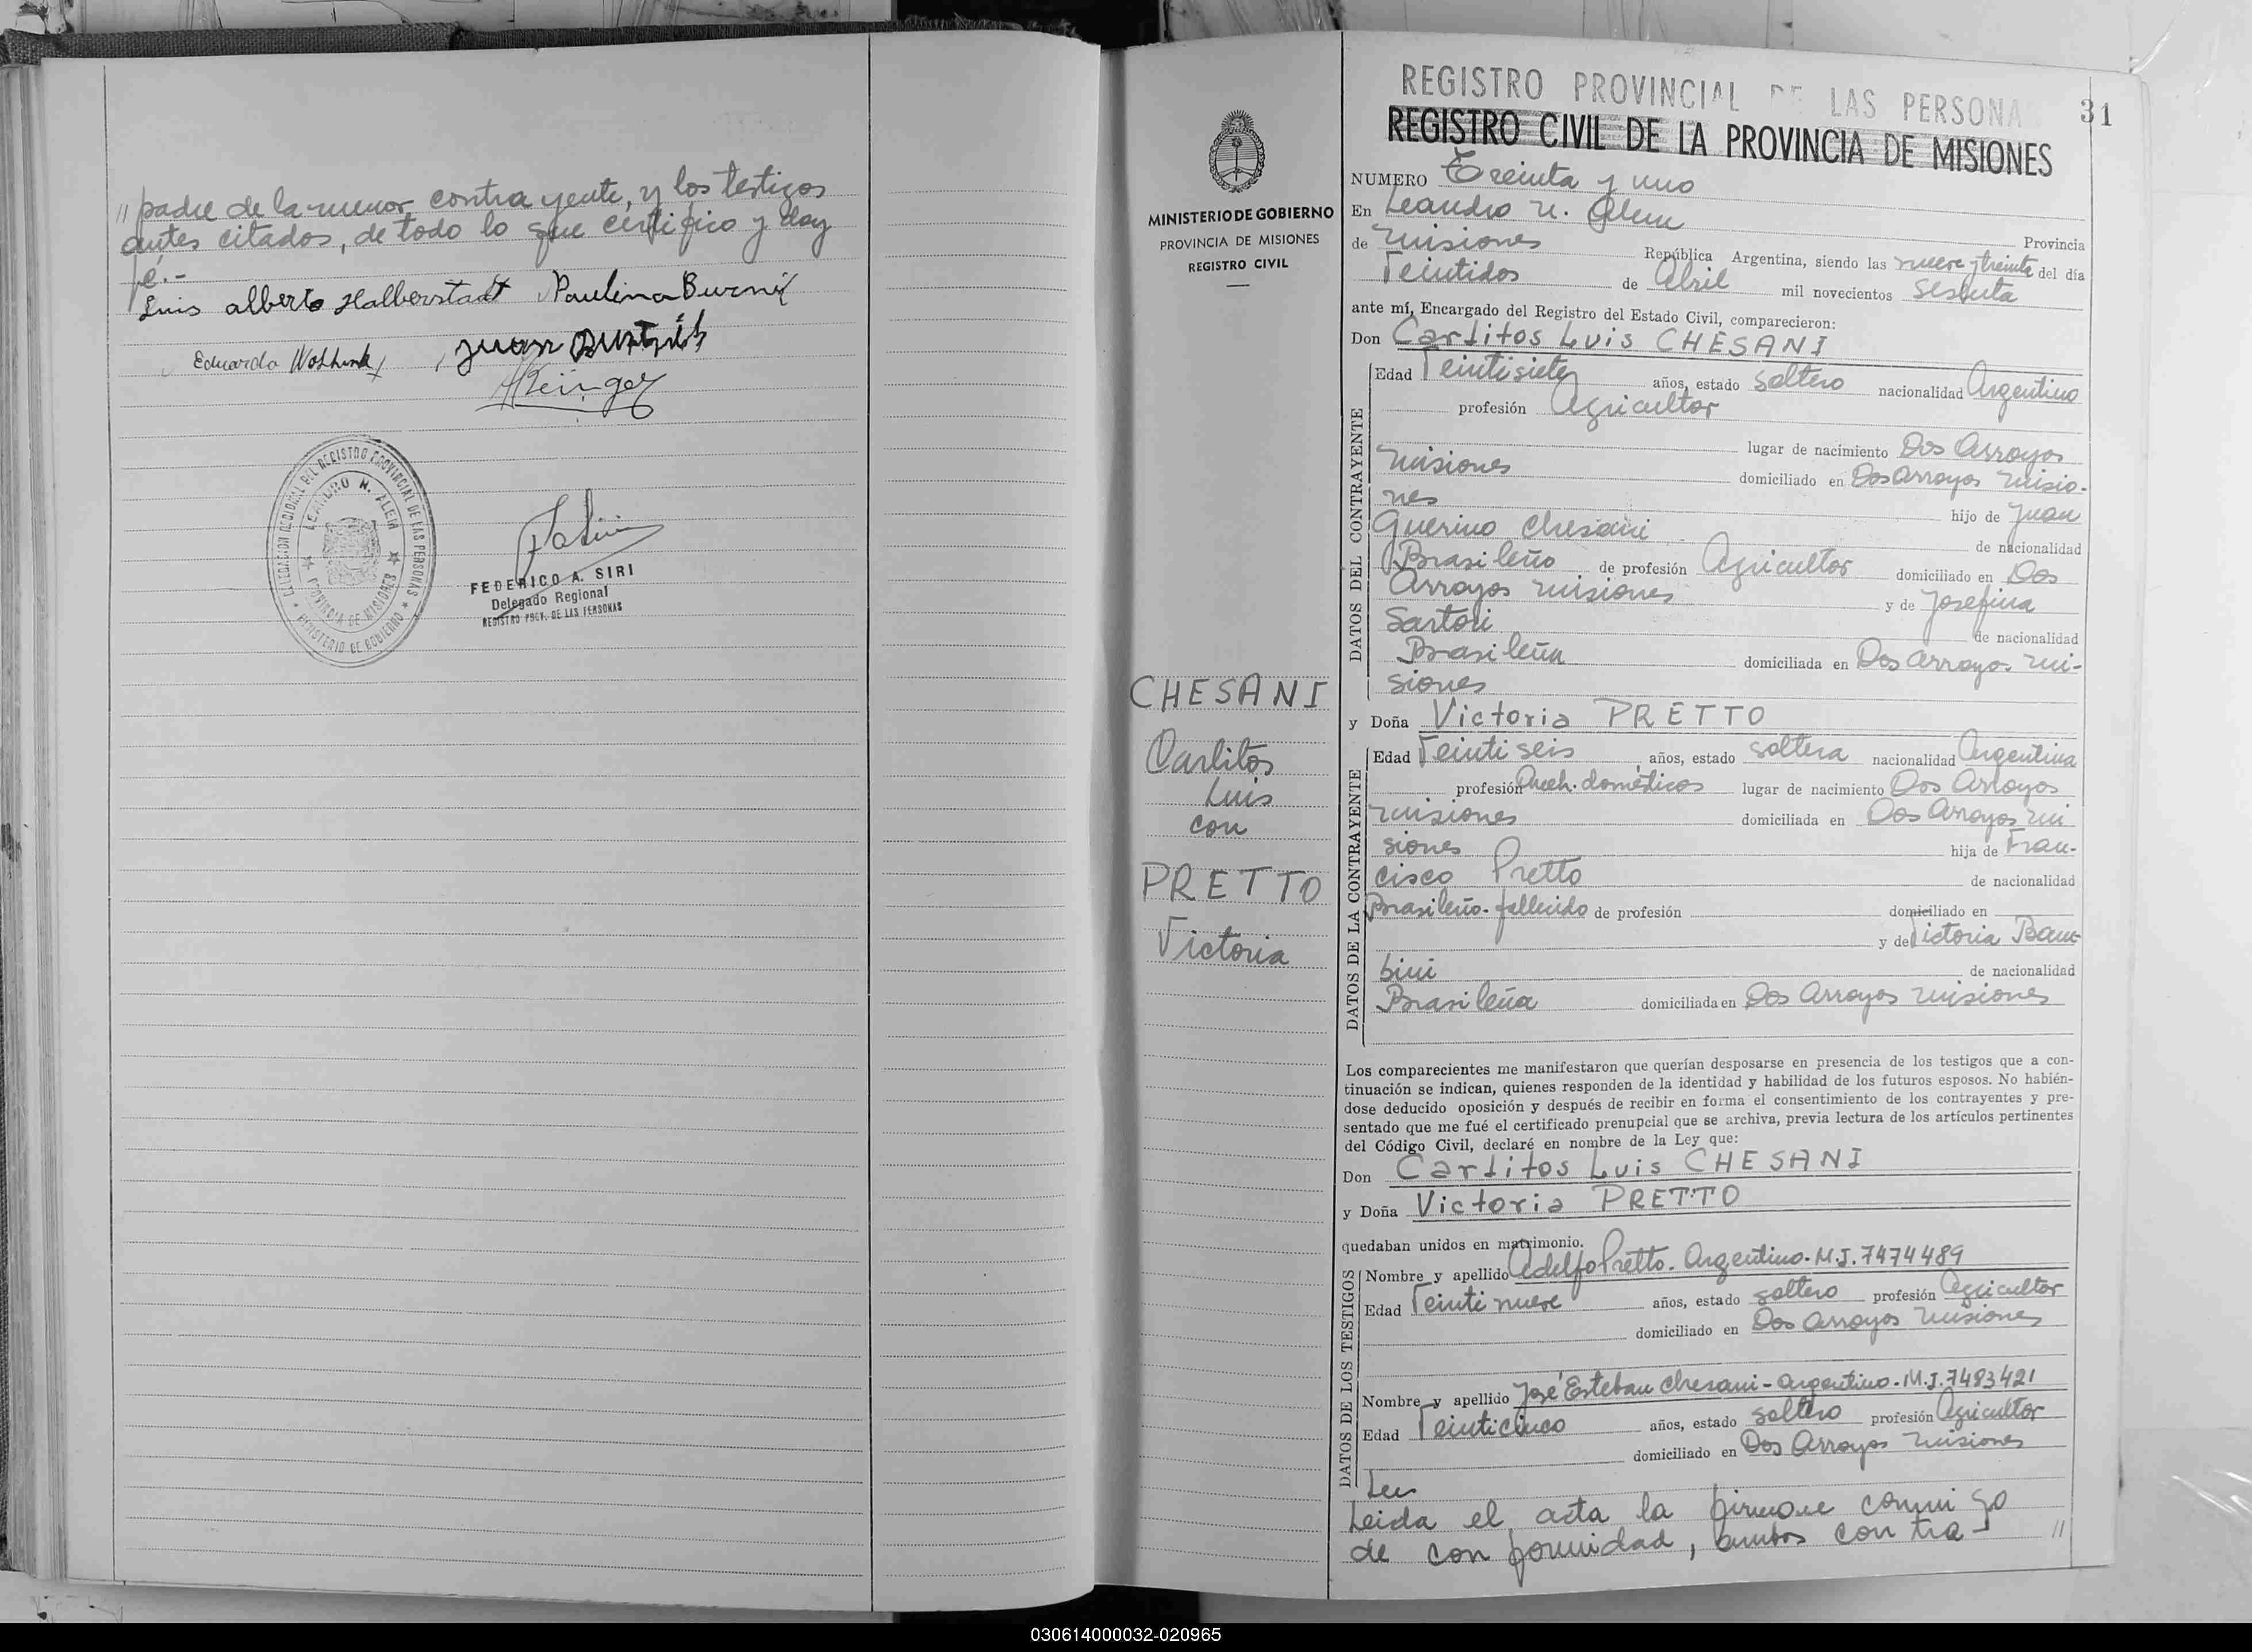 // padre de la menor contrayente, y los testigos
antes citados, de todo lo que certifico y doy
fé.-
Luis alberto Halberstadt Paulina
Eduardo Juan
FEDERICO A. SIRI
Delegado Regional
REGISTRO PROV. DE LAS PERSONAS
DELEGACION REGIONAL DEL REGISTRO PROVINCIAL DE LAS PERSONAS
LEANDRO N. ALEM
PROVINCIA DE MISIONES
MINISTERIO DE GOBIERNO
MINISTERIO DE GOBIERNO
PROVINCIA DE MISIONES
REGISTRO CIVIL
CHESANI
Carlitos
Luis
con
PRETTO
Victoria
REGISTRO PROVINCIAL DE LAS PERSONA
31
REGISTRO CIVIL DE LA PROVINCIA DE MISIONES
NUMERO Treinta y uno
En Leandro N. Alem
Provincia
de Misiones República Argentina, siendo las nueve y treinta del día
Veintidos de Abril mil novecientos sesenta
ante mí, Encargado del Registro del Estado Civil, comparecieron:
Don Carlitos Luis CHESANI
DATOS DEL CONTRAYENTE
Edad Veintisiete años, estado soltero nacionalidad Argentino
profesión Agricultor
lugar de nacimiento Dos Arroyos
Misiones domiciliado en Dos Arroyos Misio-
nes hijo de Juan
Guerino Chesani de nacionalidad
Brasileño de profesión Agricultor domiciliado en Dos
Arroyos Misiones y de Josefina
Sartori de nacionalidad
Brasileña domiciliada en Dos Arroyos Mi-
siones
y Doña Victoria PRETTO
DATOS DE LA CONTRAYENTE
Edad Veintiseis años, estado soltera nacionalidad Argentina
profesión Queh. domésticos lugar de nacimiento Dos Arroyos
Misiones domiciliada en Dos Arroyos Mi
siones hija de Fran-
cisco Pretto de nacionalidad
Brasileño-fallecido de profesión domiciliado en
y de Victoria Bam
bini de nacionalidad
Brasileña domiciliada en Dos Arroyos Misiones
Los comparecientes me manifestaron que querían desposarse en presencia de los testigos que a con-
tinuación se indican, quienes responden de la identidad y habilidad de los futuros esposos. No habién-
dose deducido oposición y después de recibir en forma el consentimiento de los contrayentes y pre-
sentado que me fué el certificado prenupcial que se archiva, previa lectura de los artículos pertinentes
del Código Civil, declaré en nombre de la Ley que:
Don Carlitos Luis CHESANI
y Doña Victoria PRETTO
quedaban unidos en matrimonio.
DATOS DE LOS TESTIGOS
Nombre y apellido Adelfo Pretto. Argentino. M.I. 7474489
Edad Veintinueve años, estado soltero profesión Agricultor
domiciliado en Dos Arroyos Misiones
Nombre y apellido José Esteban Chesani-Argentino. M.I. 7483421
Edad Veinticinco años, estado soltero profesión Agricultor
domiciliado en Dos Arroyos Misiones
Leída el acta la firman conmigo
de conformidad, ambos contra- //
030614000032-020965